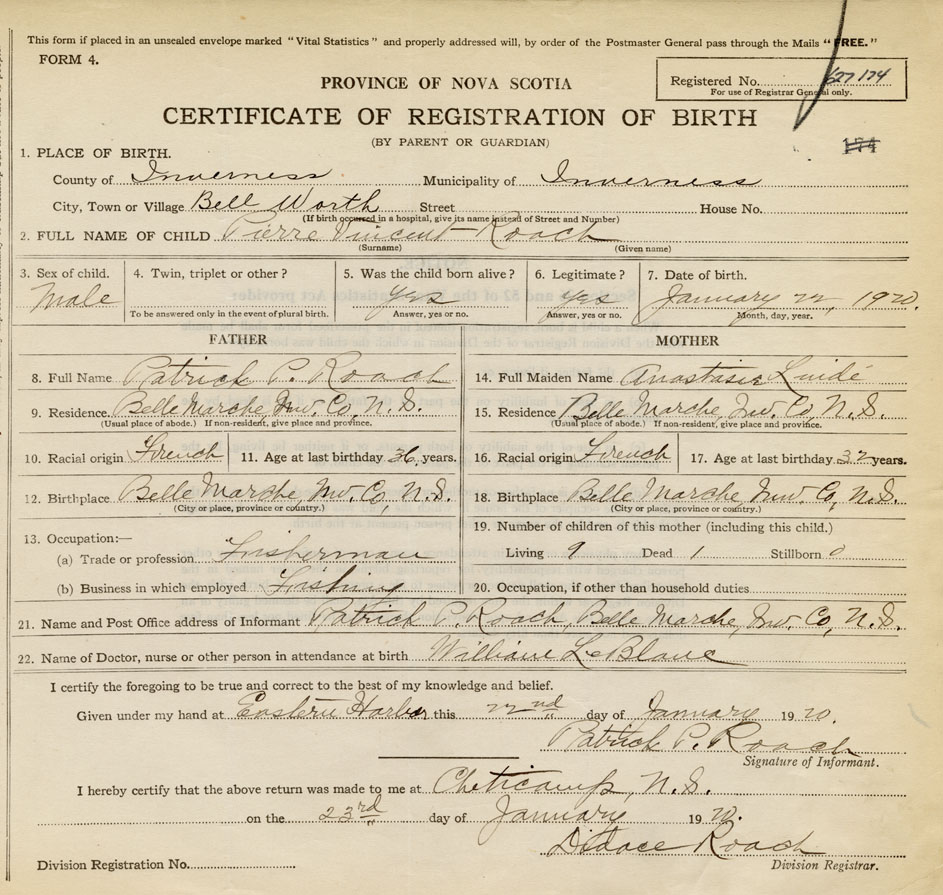 This form if placed in an unsealed envelope marked "Vital Statistics" and properly addressed will, by order of the Postmaster General pass through the Mails "FREE."
FORM 4.
PROVINCE OF NOVA SCOTIA
Registered No. 627174
For use of Registrar General only.
CERTIFICATE OF REGISTRATION OF BIRTH
(BY PARENT OR GUARDIAN)
1. PLACE OF BIRTH.
County of Inverness Municipality of Inverness
City, Town or Village Bell Worth Street House No.
(If birth occurred in a hospital, give its name instead of Street and Number)
2. FULL NAME OF CHILD Pierre Vincent Roach
(Surname) (Given name)
3. Sex of child. 4. Twin, triplet or other? 5. Was the child born alive? 6. Legitimate? 7. Date of birth.
Male Yes Yes January 22, 1920.
To be answered only in the event of plural birth. Answer, yes or no. Answer, yes or no. Month, day, year.
FATHER MOTHER
8. Full Name Patrick P. Roach 14. Full Maiden Name Anastasie Luidé
9. Residence. Belle Marche, Inv. Co, N. S. 15. Residence Belle Marche, Inv. Co, N. S.
(Usual place of abode.) If non-resident, give place and province. (Usual place of abode.) If non-resident, give place and province.
10. Racial origin French 11. Age at last birthday 36 years. 16. Racial origin French 17. Age at last birthday 32 years.
12. Birthplace Belle Marche, Inv. Co, N. S. 18. Birthplace Belle Marche, Inv. Co, N. S.
(City or place, province or country.) (City or place, province or country.)
13. Occupation:— 19. Number of children of this mother (including this child.)
(a) Trade or profession Fisherman Living 9 Dead 1 Stillborn 0
(b) Business in which employed Fishing 20. Occupation, if other than household duties
21. Name and Post Office address of Informant Patrick P. Roach, Belle Marche, Inv. Co, N. S.
22. Name of Doctor, nurse or other person in attendance at birth William LeBlanc
I certify the foregoing to be true and correct to the best of my knowledge and belief.
Given under my hand at Eastern Harbor this 22nd day of January 1920.
Patrick P. Roach
Signature of Informant.
I hereby certify that the above return was made to me at Cheticamp, N. S.
on the 23rd day of January 1920.
Didace Roach
Division Registration No. Division Registrar.